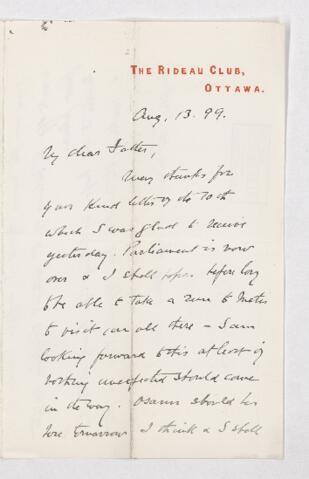 THE RIDEAU CLUB,
OTTAWA.
Aug. 13. 99.
My dear Father,
Many thanks for
your kind letter of the 10th
which I was glad to receive
yesterday. Parliament is now
over & I shall hope before long
to be able to take a run to Metis
to visit you all there - I am
looking forward to this at least if
nothing unexpected should come
in the way. should be
here tomorrow I think & I shall